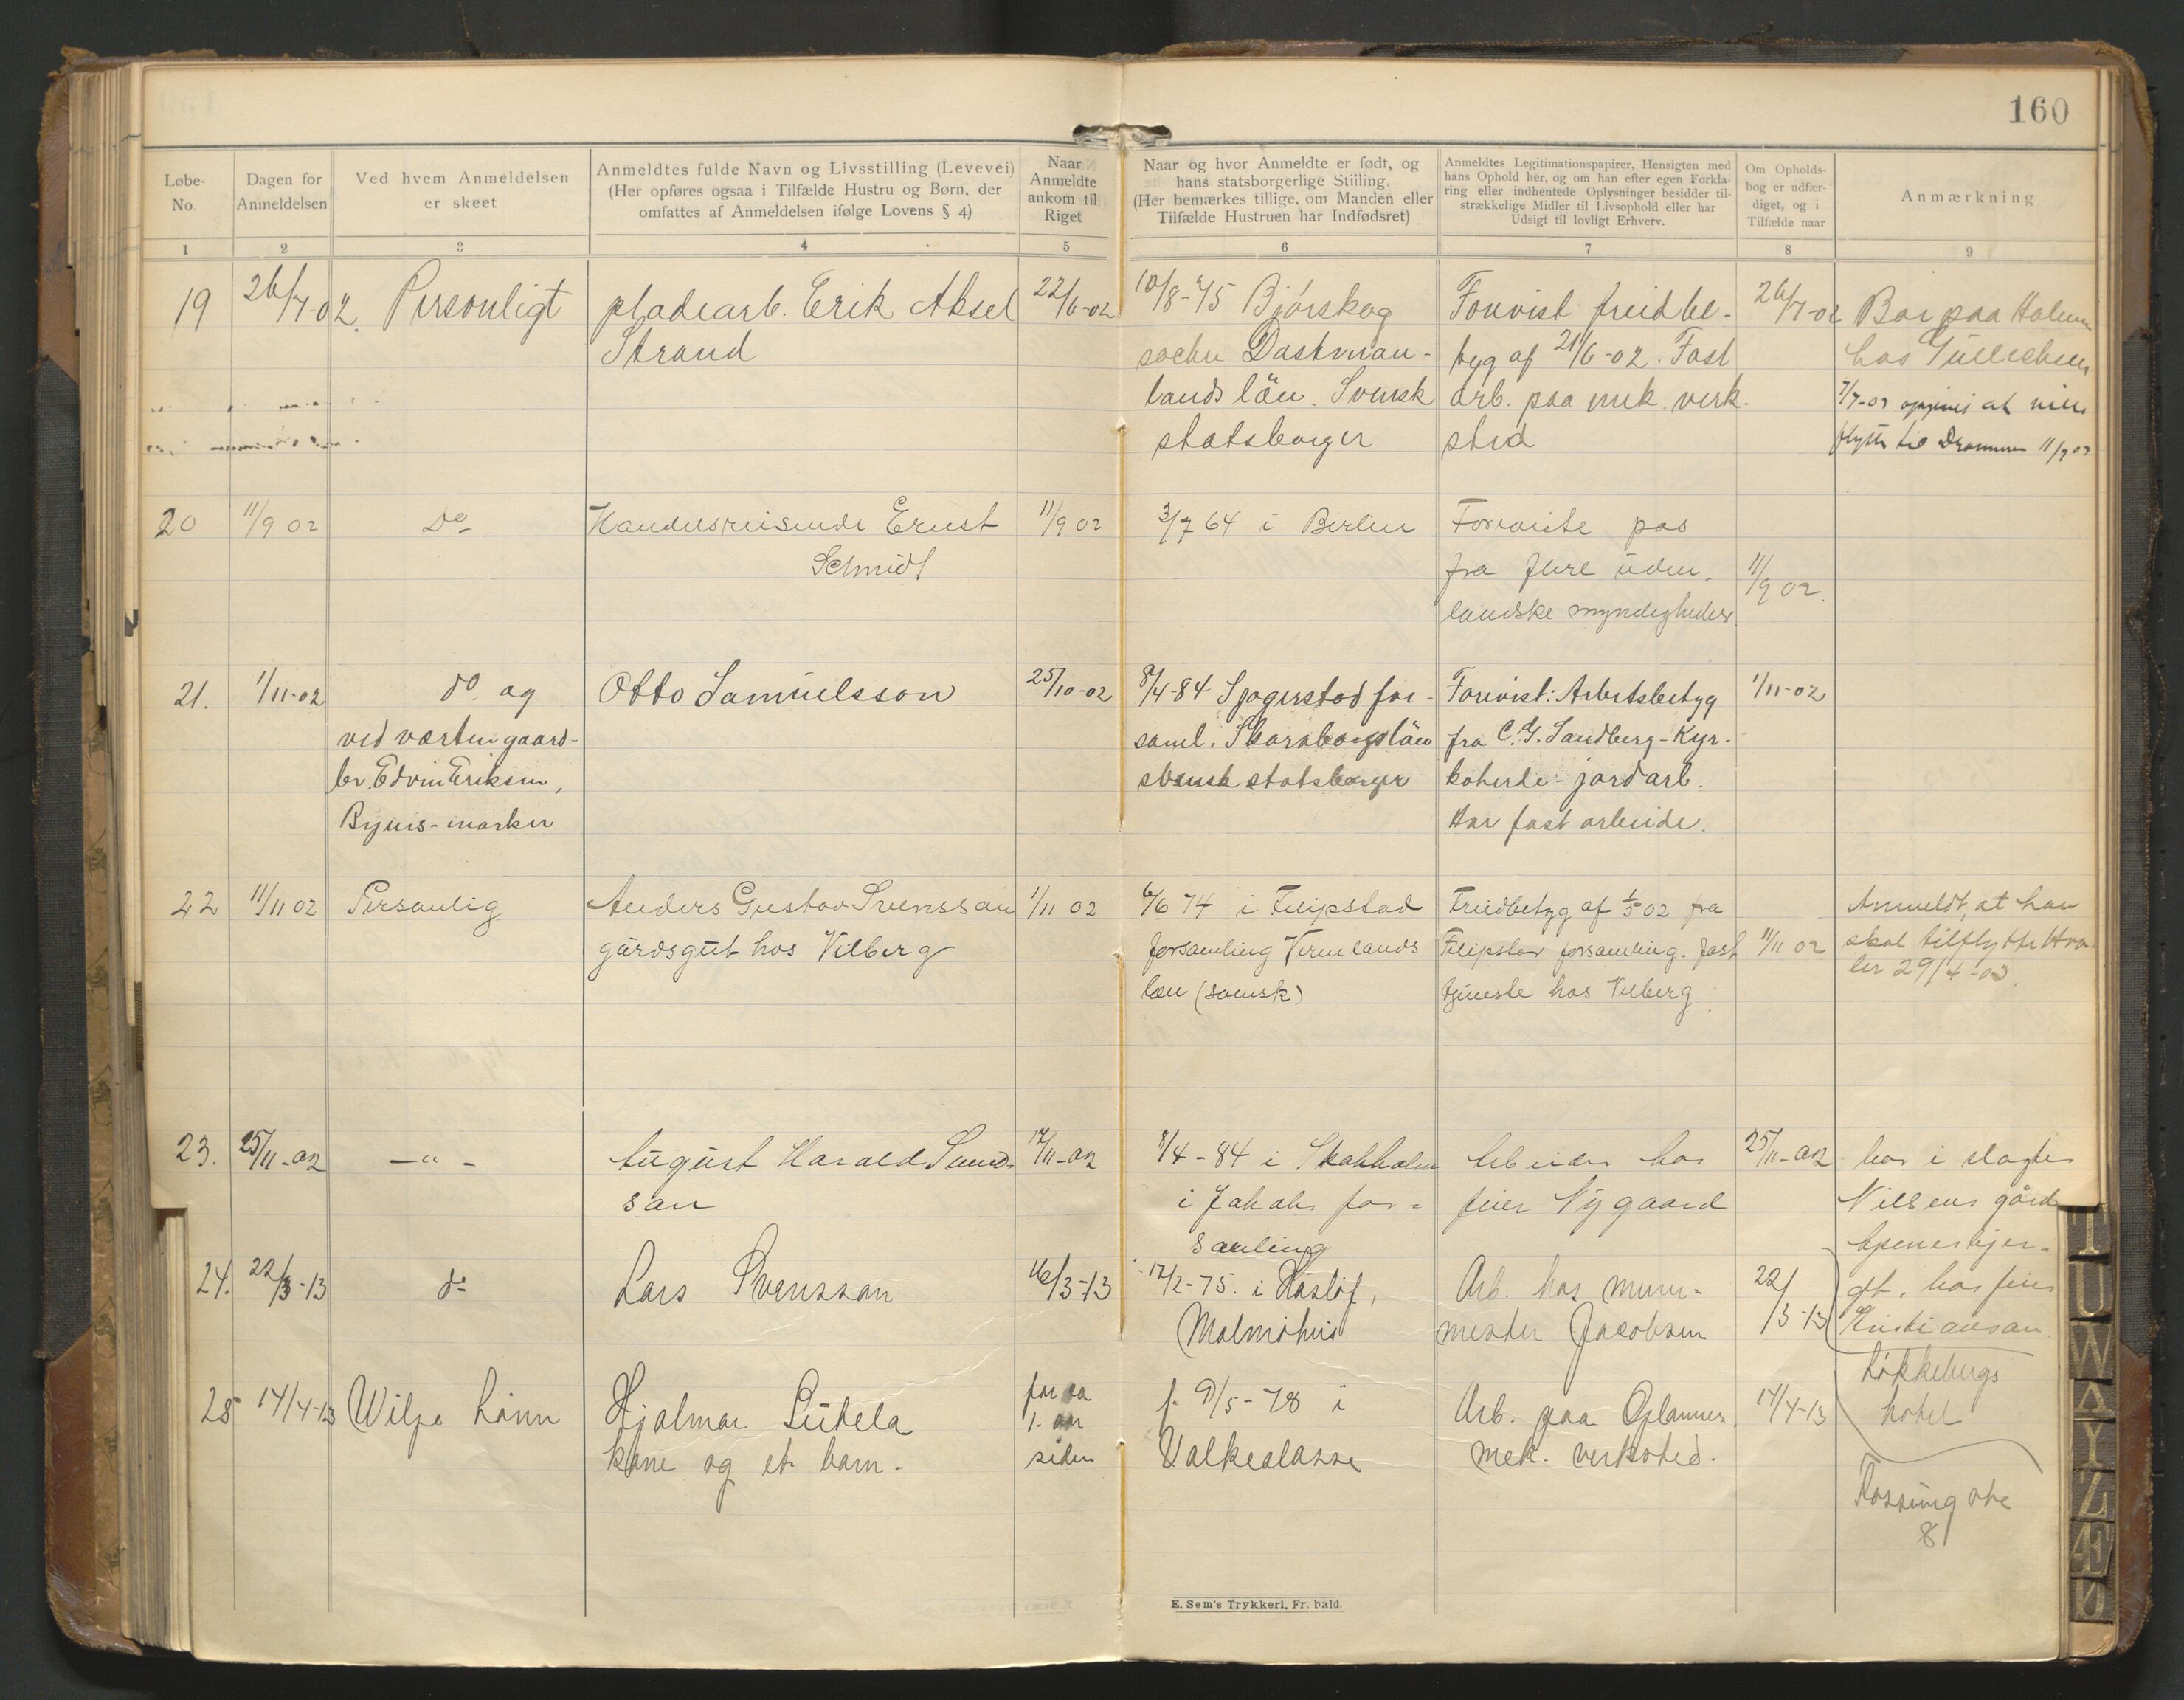 160
Løbe-
No.
Dagen for
Anmeldelsen
Ved hvem Anmeldelsen
er skeet
Anmeldtes fulde Navn og Livsstilling (Levevei)
(Her opføres ogsaa i Tilfælde Hustru og Børn, der
omfattes af Anmeldelsen ifølge Lovens § 4)
Naar
Anmeldte
ankom til
Riget
Naar og hvor Anmeldte er født, og
hans statsborgerlige Stilling.
(Her bemærkes tillige, om Manden eller
Tilfælde Hustruen har Indfødsret)
Anmeldtes Legitimationspapirer, Hensigten med
hans Ophold her, og om han efter egen Forkla-
ring eller indhentede Oplysninger besidder til-
strækkelige Midler til Livsophold eller har
Udsigt til lovligt Erhverv.
Om Opholds-
bog er udfær-
diget, og i
Tilfælde naar
Anmærkning
1 2 3 4 5 6 7 8 9
19
26/7-02.
Personligt
pladearb. Erik Aksel
Strand
22/6-02
10/8-75 Bjórskog
socken Dastman-
lands län. Svensk
statsborger
Forevist freidbe-
tyg af 21/6-02. Fast
arb. paa mek. verk-
sted
26/7-02
Bor paa Holmen
hos Gullichsen
7/7-03 at
flytte til Drammen 11/7 03
20
11/9 02
Do
Handelsreisende Ernst
Schmidt
11/9 02
3/7 64 i Berlin
Foreviste pas
fra flere uden-
landske myndigheder
11/9 02.
21.
1/11-02
do. og
ved værten gaard-
br. Edvin Eriksen,
Byens-marker
Otto Samuelsson
25/10-02
8/4-84 Sjogerstad for-
saml. Skaraborgs län
svensk statsborger
Forevist: Arbetsbetyg
fra C. G. Sandberg-Kyr-
koherde - jordarb.
Har fast arbeide.
1/11-02
22
11/11 02
Personlig
Anders Gustav Svenssan
gårdsgut hos Vilberg
1/11 02
6/6 74 i Filipstad
forsamling Vermlands
læn (svensk)
Freidbetyg af 1/5 02 fra
Filipstad forsamling. Fast
tjeneste hos Vilberg
11/11 02
Anmeldt, at han
skal tilflytte Hva-
ler 29/4-03.
23.
25/11-02
-"-
August Harald Sund-
san
17/11-02
8/4-84 i Stokholm
i Jakobs for-
samling
Arbeider hos
feier Nygaard
25/11-02
bor i slagter
Nilsens gård
24.
22/3-13
do
Lars Svenssan
16/3-13
17/2-75. i Håslöf,
Malmöhus
Arb. hos mur-
mester Jacobsen
22/3-13
gt, hos feier
Kristiansan
25
14/4-13
Wilpo Lönn
Hjalmar Sutela
kone og et barn.
for ca
1. aar
siden
f. 9/5-78 i
Valkealasse
Arb. paa
mek. verksted.
14/4-13
Løkkebergs
hotel
8
E. Sem's Trykkeri, Fr. hald.
T
U
W
Y
Z
Æ
Ø